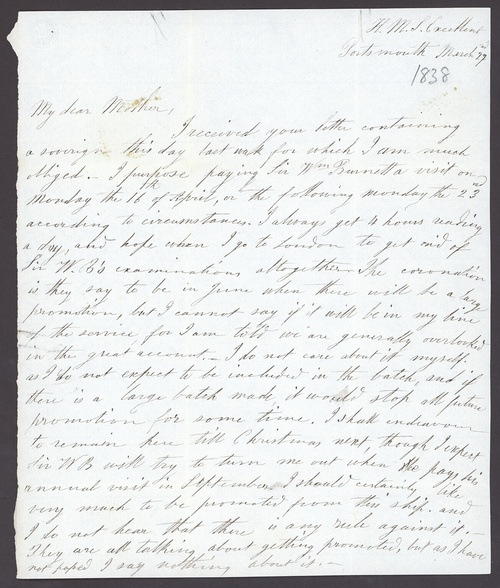 H.M.S. Excellent
Portsmouth March 27
1838
My dear Mother,
I received your letter containing
a soverign this day last week for which I am much
obliged. – I purpose paying Sir Wm Burnett a visit on
Monday the 16th of April, or the following monday the 23rd
according to circumstances. I always get 4 hours reading
a day, and hope when I go to London to get rid of
Sir W. B's examinations altogether. The coronation
is they say to be in June when there will be a large
promotion, but I cannot say if it will be in my line
of the service, for I am told we are generally overlooked
in the great account – I do not care about it myself
as I do not expect to be included in the batch, and if
there is a large batch made it would stop all future
promotion for some time. I shall endeavour
to remain here till Christmas next, though I expect
Sir W B will try to turn me out when he pays his
annual visit in September. I should certainly like
very much to be promoted from this ship. and
I do not hear that there is any rule against it. –
They are all talking about getting promoted, but as I have
not I say nothing about it. –